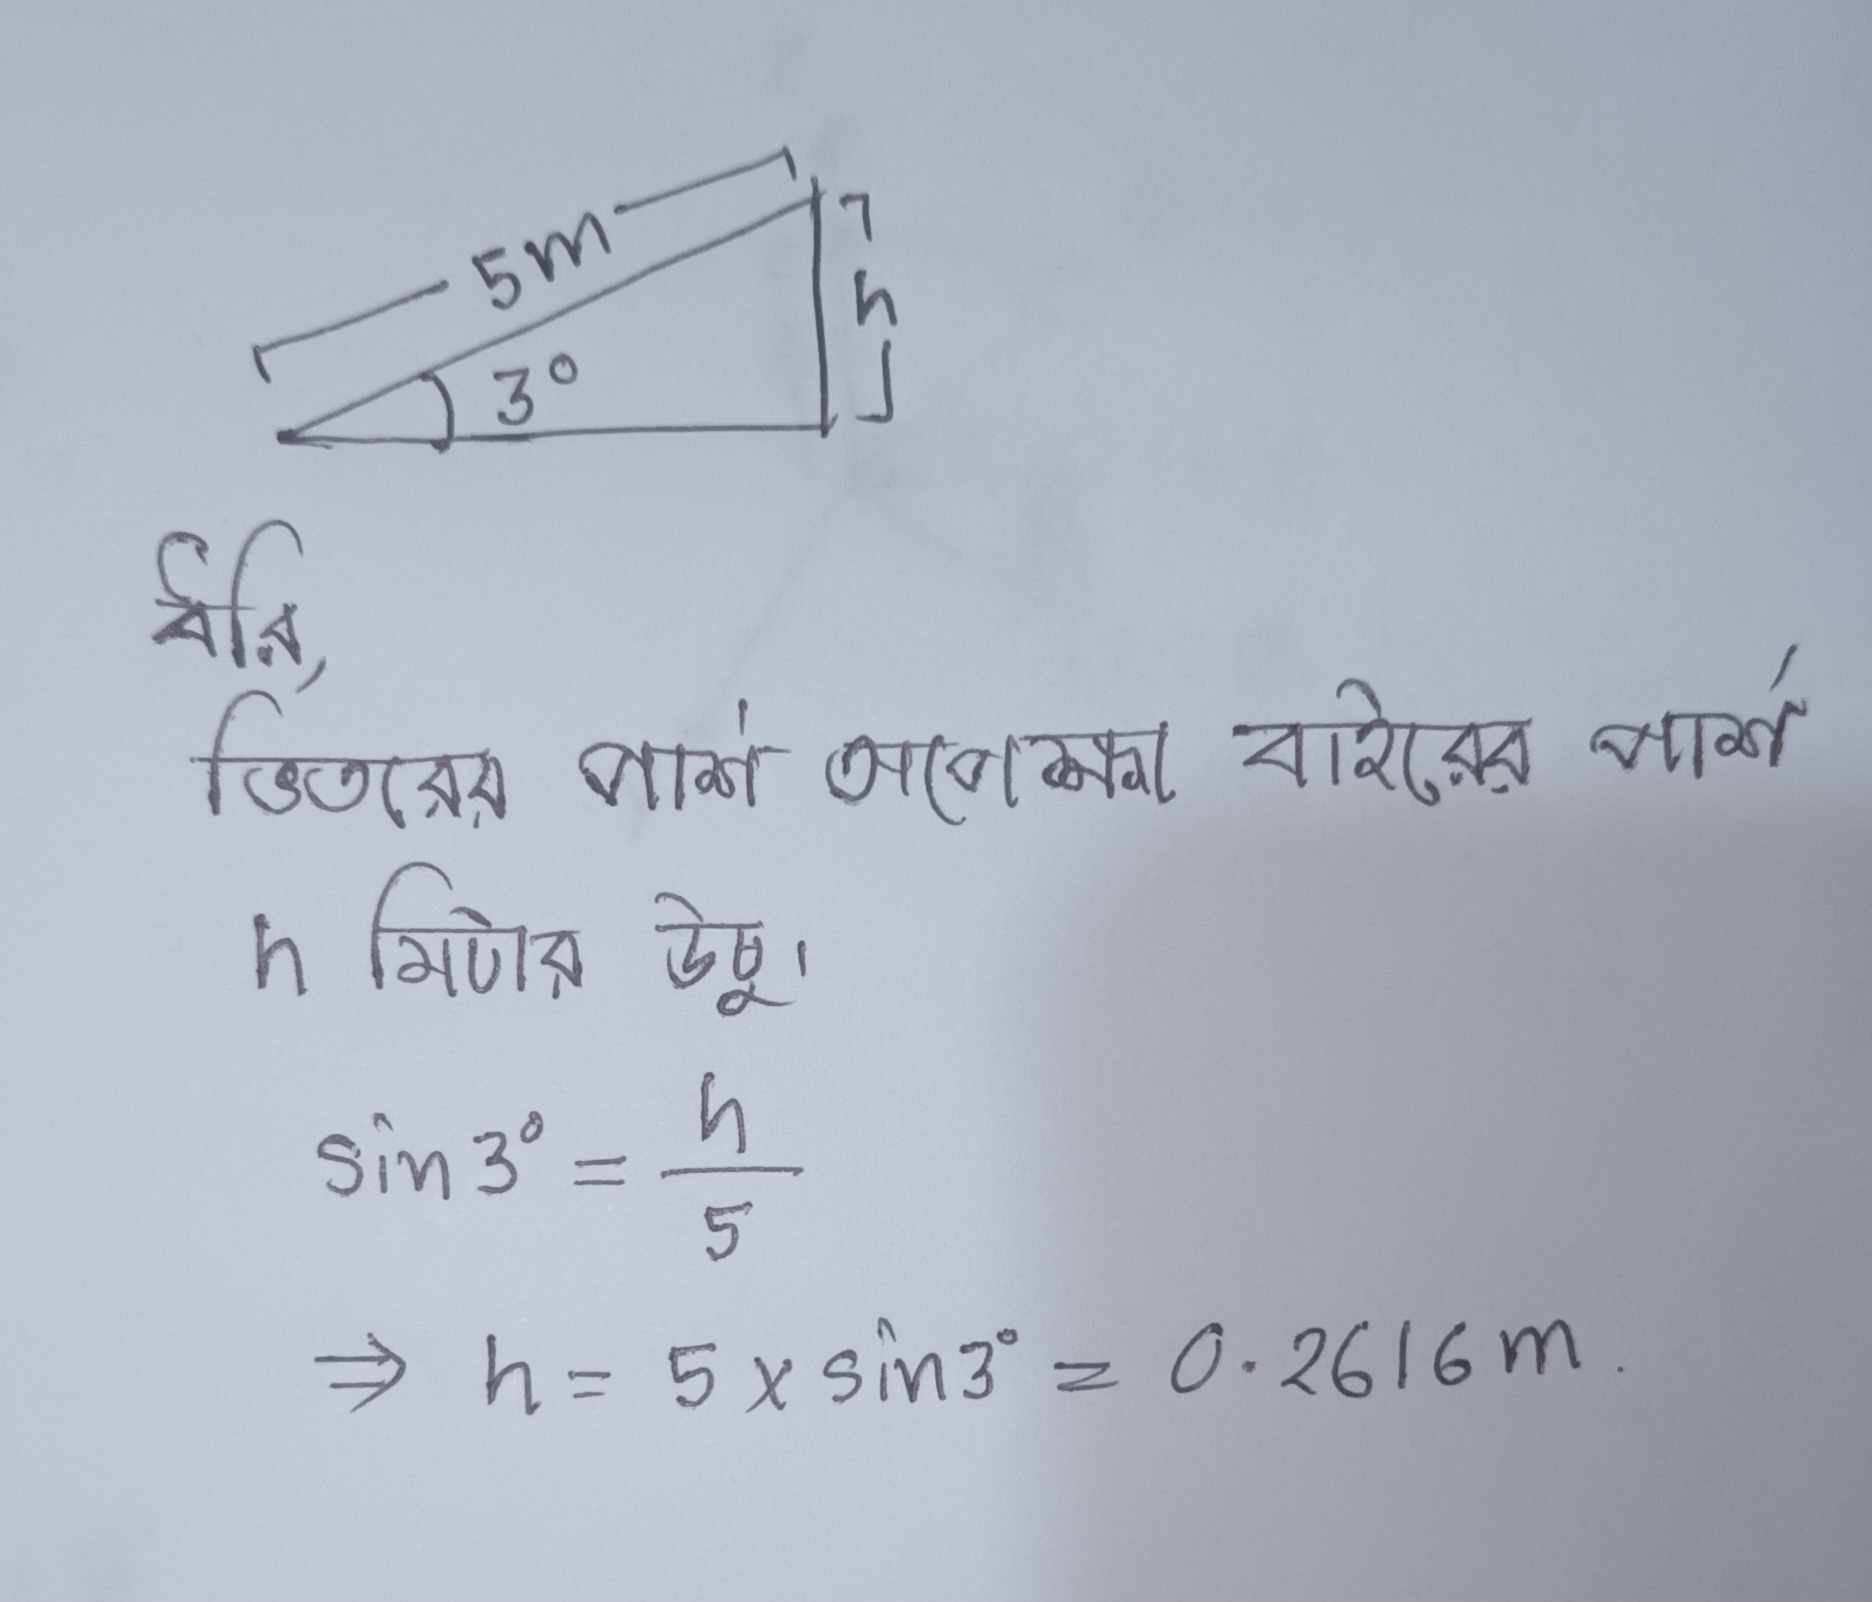 5m
h
3°
ধরি,
ভিতরের পার্শ অপেক্ষা বাইরের পার্শ
h মিটার উচু।
sin 3° = h/5
⇒ h = 5 × sin3° = 0.2616 m.